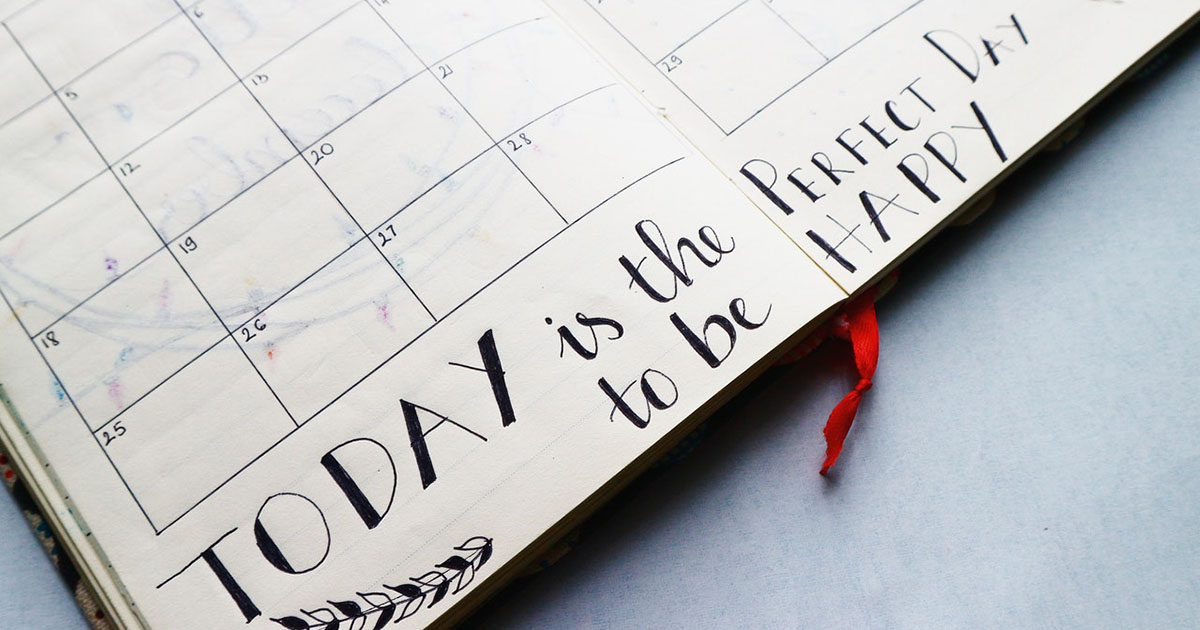 5 6
12 13 14
18 19 20 21
25 26 27 28 29
TODAY is the PERFECT DAY
to be HAPPY